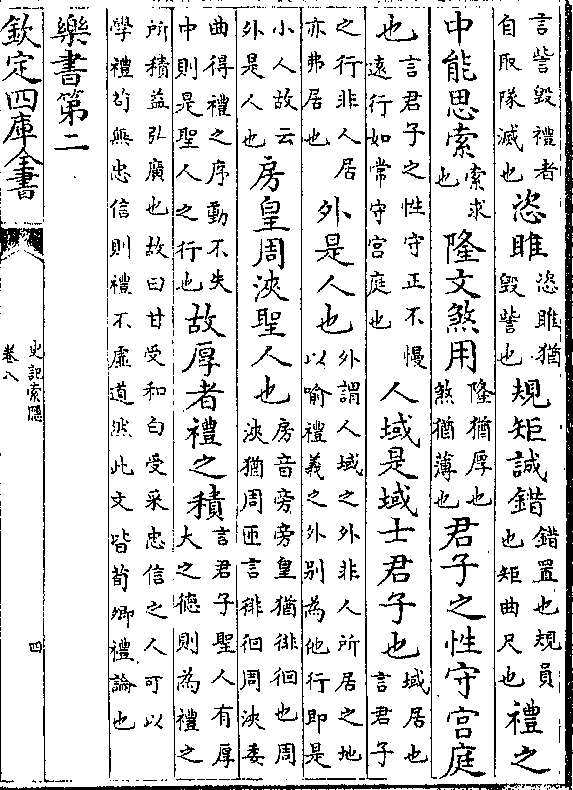 言訾毀禮者自取隊滅也恣睢恣睢猶毀訾也規矩誠錯錯置也規員也矩曲尺也禮之
中能思索索求也隆文煞用隆猶厚也煞猶薄也君子之性守宫庭
也言君子之性守正不慢遠行如常守宫庭也人域是域士君子也域居也言君子
之行非人居亦弗居也外是人也外謂人域之外非人所居之地以喻禮義之外别為他行即是
小人故云外是人也房皇周浹聖人也房音旁旁皇猶徘徊也周浹猶周匝言徘徊周浹委
曲得禮之序動不失中則是聖人之行也故厚者禮之積言君子聖人有厚大之德則為禮之
所積益弘廣也故曰甘受和白受采忠信之人可以學禮茍無忠信則禮不虚道然此文皆荀卿禮論也
樂書第二
欽定四庫全書
史記索隱
卷八
四